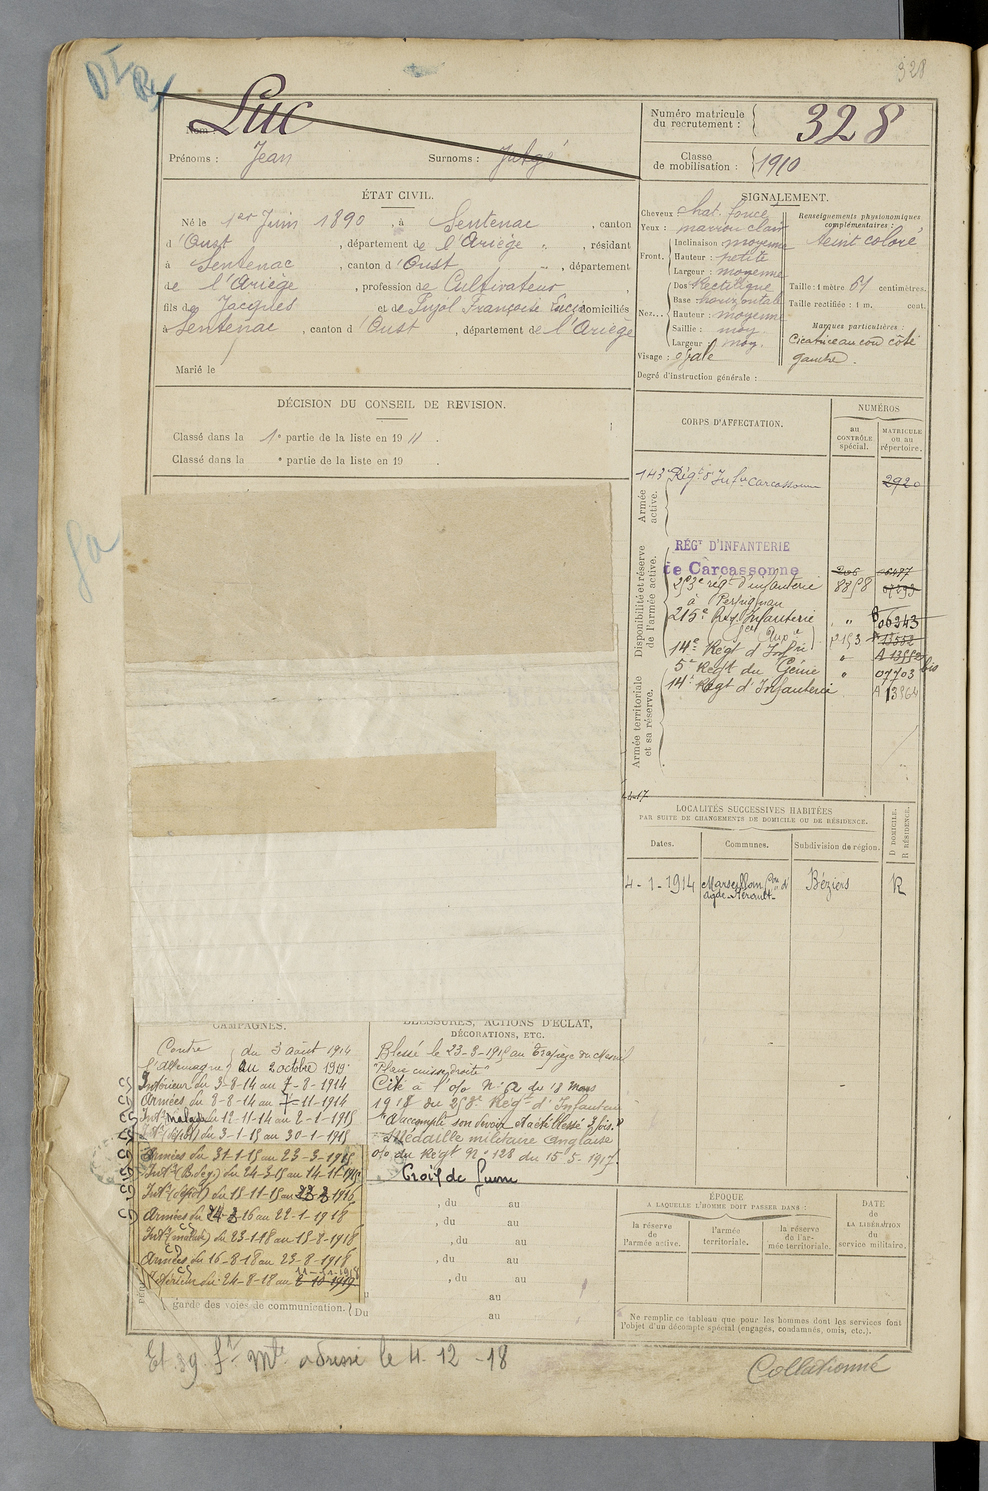 328
Luc
Nom :
Prénoms : Jean Surnoms :
Numéro matricule du recrutement : 328
Classe de mobilisation : 1910
ÉTAT CIVIL.
Né le 1er Juin 1890, à Sentenac, canton
d'Oust, département de l'Ariège, résidant
à Sentenac, canton d'Oust, département
de l'Ariège, profession de Cultivateur,
fils de Jacques et de Pujol Françoise domiciliés
à Sentenac, canton d'Oust, département de l'Ariège
Marié le
SIGNALEMENT.
Cheveux chat. foncé
Yeux : marron clair
Front. Inclinaison : moyenne
Hauteur : petite
Largeur : moyenne
Nez... Dos Rectiligne
Base horizontale
Hauteur : moyenne
Saillie : moy.
Largeur moy.
Visage : ovale
Renseignements physionomiques complémentaires :
teint coloré
Taille : 1 mètre 61 centimètres.
Taille rectifiée : 1 m. cent.
Marques particulières :
Cicatrice au cou côté
gauche.
Degré d'instruction générale :
DÉCISION DU CONSEIL DE REVISION.
Classé dans la 1e partie de la liste en 1911.
Classé dans la e partie de la liste en 19 .
CORPS D'AFFECTATION.
NUMÉROS
au CONTRÔLE spécial.
MATRICULE ou au répertoire.
Armée active.
143e Régt d'Infie Carcassonne 2920
Disponibilité et réserve de l'armée active.
RÉGT D'INFANTERIE
de Carcassonne
253e régt d'infanterie 8858
à Perpignan
215e Régt Infanterie 06243
14e Régt d'Infie
5e Regt du Génie 07703 bis
14e Régt d'Infanterie
Armée territoriale et sa réserve.
LOCALITÉS SUCCESSIVES HABITÉES
PAR SUITE DE CHANGEMENTS DE DOMICILE OU DE RÉSIDENCE.
Dates. Communes. Subdivision de région. D DOMICILE. R RÉSIDENCE.
4-1-1914 Marseillan Con d'Agde Hérault Béziers R
CAMPAGNES.
Contre l'Allemagne du 3 août 1914
au 2 octobre 1919
Intérieur du 3-8-14 au 7-8-1914
Armées du 8-8-14 au 7-11-1914
Intr malade du 12-11-14 au 2-1-1915
Intr (dépôt) du 3-1-15 au 30-1-1915
Armées du 31-1-15 au 23-3-1915
Intr (Bség) du 24-3-15 au 14-11-1915
Intr (dépôt) du 15-11-15 au 1916
Armées du 16 au 22-1-1918
Intr (malade) du 23-1-18 au 15-8-1918
Armées du 16-8-18 au 23-8-1918
Intérieur du 24-8-18 au 2-10-1919
garde des voies de communication. Du
BLESSURES, ACTIONS D'ÉCLAT,
DÉCORATIONS, ETC.
Blessé le 23-3-1915 au
"Plaie cuisse droite"
Cité à l'o/o No 2 du 18 mars
1918 du 258e Régt d'Infanterie
"A accompli son devoir. A été blessé 2 fois."
Médaille militaire Anglaise
o/o du Régt No 128 du 15-5-1917.
Croix de Guerre
, du au
, du au
, du au
, du au
, du au
au
au
ÉPOQUE
À LAQUELLE L'HOMME DOIT PASSER DANS :
la réserve de l'armée active.
l'armée territoriale.
la réserve de l'armée territoriale.
DATE de LA LIBÉRATION du service militaire.
Ne remplir ce tableau que pour les hommes dont les services font
l'objet d'un décompte spécial (engagés, condamnés, omis, etc.).
adressé le 4-12-18
Collationné